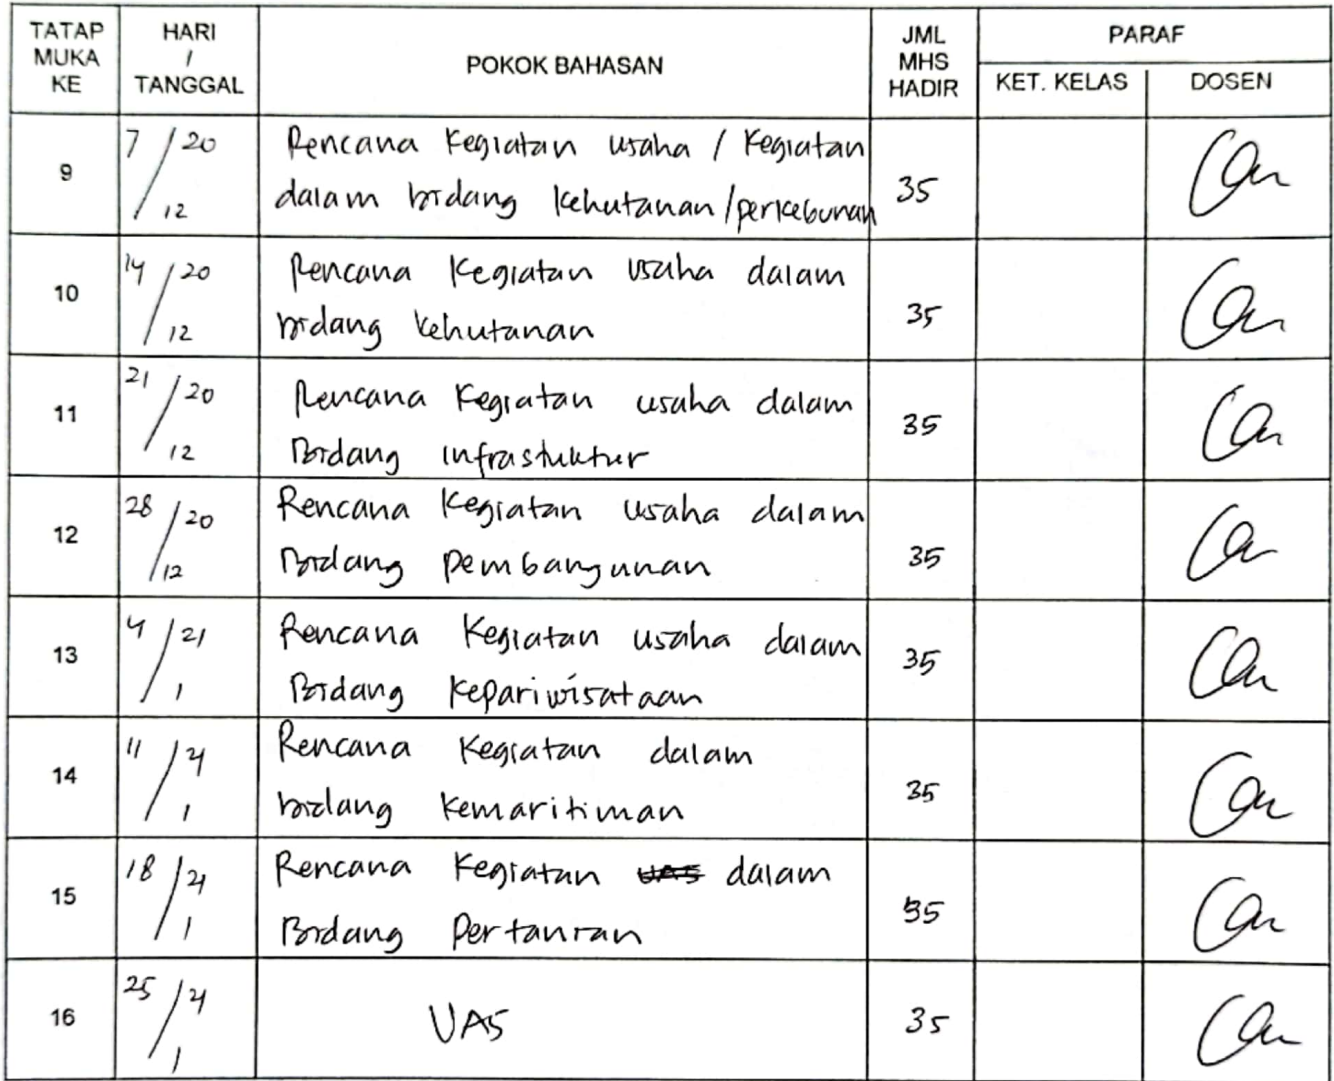 TATAP MUKA KE
HARI / TANGGAL
POKOK BAHASAN
JML MHS HADIR
PARAF
KET. KELAS
DOSEN
9
7/12 20
Rencana Kegiatan usaha / Kegiatan
dalam bidang kehutanan/perkebunan
35
10
14/12 20
Rencana Kegiatan usaha dalam
bidang kehutanan
35
11
21/12 20
Rencana Kegiatan usaha dalam
Bidang infrastuktur
35
12
28/12 20
Rencana Kegiatan usaha dalam
Bidang pembangunan
35
13
4/1 21
Rencana Kegiatan usaha dalam
Bidang Kepariwisataan
35
14
11/1 21
Rencana Kegiatan dalam
bidang kemaritiman
35
15
18/1 21
Rencana Kegiatan UAS dalam
Bidang Pertanian
35
16
25/1 21
UAS
35